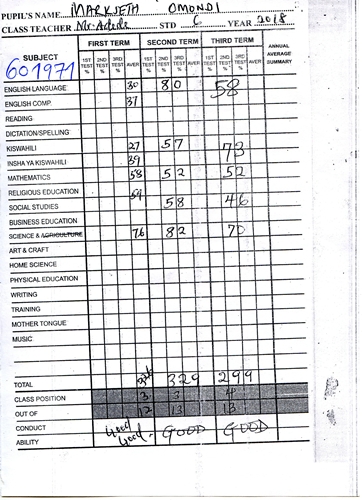 PUPIL'S NAME MARK JETH OMONDI
CLASS TEACHER Mr. STD 6 YEAR 2018
SUBJECT FIRST TERM SECOND TERM THIRD TERM ANNUAL AVERAGE SUMMARY
601971 1ST TEST % 2ND TEST % 3RD TEST % AVER 1ST TEST % 2ND TEST % 3RD TEST % AVER 1ST TEST % 2ND TEST % 3RD TEST % AVER
ENGLISH LANGUAGE 30 80 58
ENGLISH COMP. 37
READING
DICTATION/SPELLING
KISWAHILI 27 57 73
INSHA YA KISWAHILI 39
MATHEMATICS 58 52 52
RELIGIOUS EDUCATION 59
SOCIAL STUDIES 58 46
BUSINESS EDUCATION
SCIENCE & AGRICULTURE 76 82 70
ART & CRAFT
HOME SCIENCE
PHYSICAL EDUCATION
WRITING
TRAINING
MOTHER TONGUE
MUSIC
TOTAL 329 299
CLASS POSITION 3 3 4
OUT OF 12 13 13
CONDUCT Good GOOD GOOD
ABILITY Good